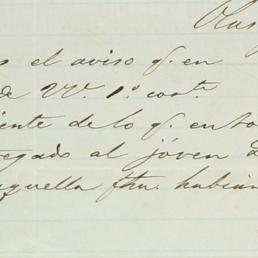 s el aviso q. en
de Vv. 1º cort.
iente de lo q. en
tegado al jóven
aquella fha. habian